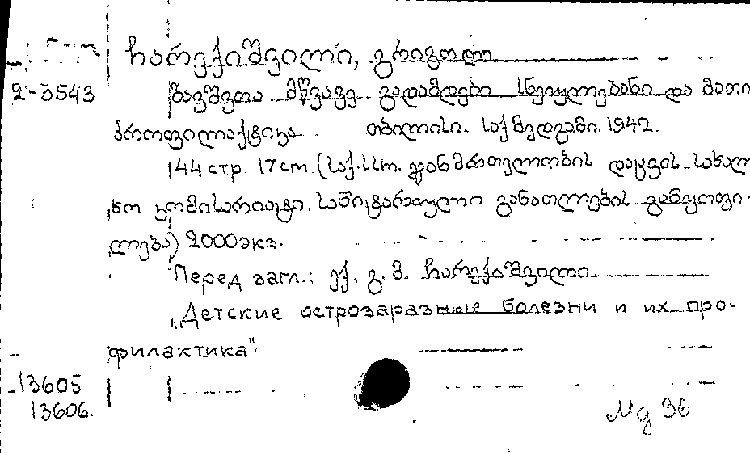 ჩარექიშვილი, გრიგოლი
2-ა543
ბავშვთა მწვავე გადამდები სნეულებანი და მათი
პროფილაქტიკა. თბილისი. საქმედგამი. 1942.
144 стр. 17 cm. (საქ. სსრ. ჯანმრთელობის დაცვის სახალ
ხო კომისარიატი. სანიტარული განათლების განყოფი-
ლება) 2000 экз.
Перед загл.: ექ. გ. ვ. ჩარექიშვილი
"Детские острозаразные болезни и их про-
филактика"
13605
13606.
Мд 36